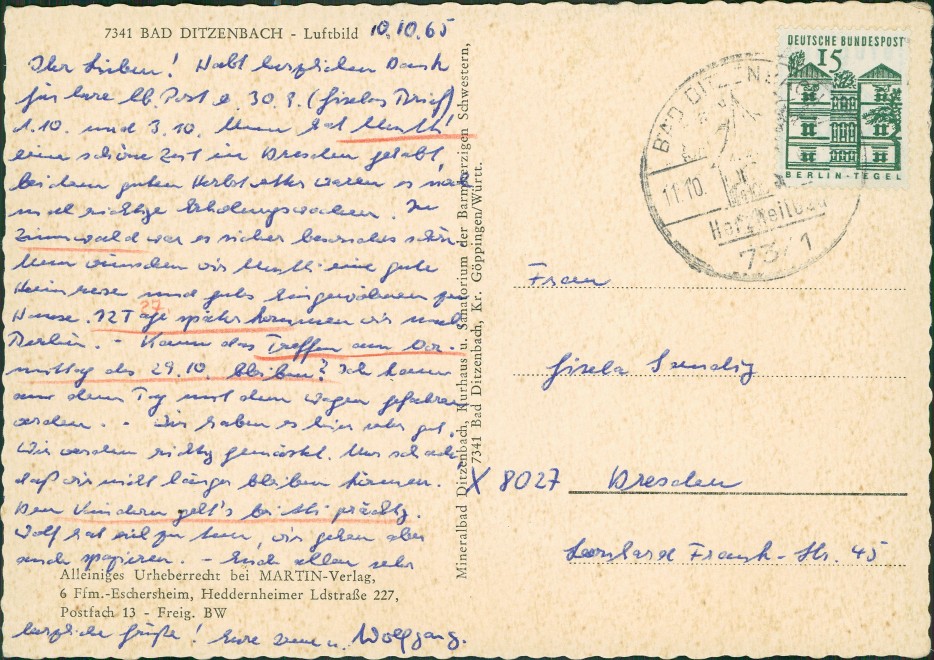 7341 BAD DITZENBACH - Luftbild 10.10.65
Ihr Lieben! Habt herzlichen Dank
für Eure lb. Post v. 30.9. (Giselas Brief)
1.10. und 3.10. Nun hat Mutti
eine schöne Zeit in Dresden gehabt,
bei dem guten Herbstwetter waren es
noch richtige Erholungswochen. In
Zinnwald war es sicher besonders schön
Nun wünschen wir Mutti eine gute
Heimreise und gutes Eingewöhnen zu
Hause. 12 Tage später kommen wir nach
Berlin. - Kann das Treffen am Vor-
mittag des 29.10. bleiben? Ich kann
nur den Tag mit dem Wagen gefahren
werden. - Wir haben es hier sehr gut.
Wir werden richtig gemästet. Nur schade
daß wir nicht länger bleiben können.
Den Kindern geht's bei prächtig.
Wolf hat viel zu tun, wir gehen aber
auch spazieren. - Euch allen sehr
Alleiniges Urheberrecht bei MARTIN-Verlag,
6 Ffm.-Eschersheim, Heddernheimer Ldstraße 227,
Postfach 13 - Freig. BW
herzliche Grüße! Eure u. Wolfgang.
Mineralbad Ditzenbach, Kurhaus u. Sanatorium der Barmherzigen Schwestern,
7341 Bad Ditzenbach, Kr. Göppingen/Württ.
DEUTSCHE BUNDESPOST
15
BERLIN-TEGEL
BAD DITZENBACH
11.10.
Heilbad
7341
Frau
Gisela Sendig
X 8027 Dresden
Leonhard Frank-Str. 45